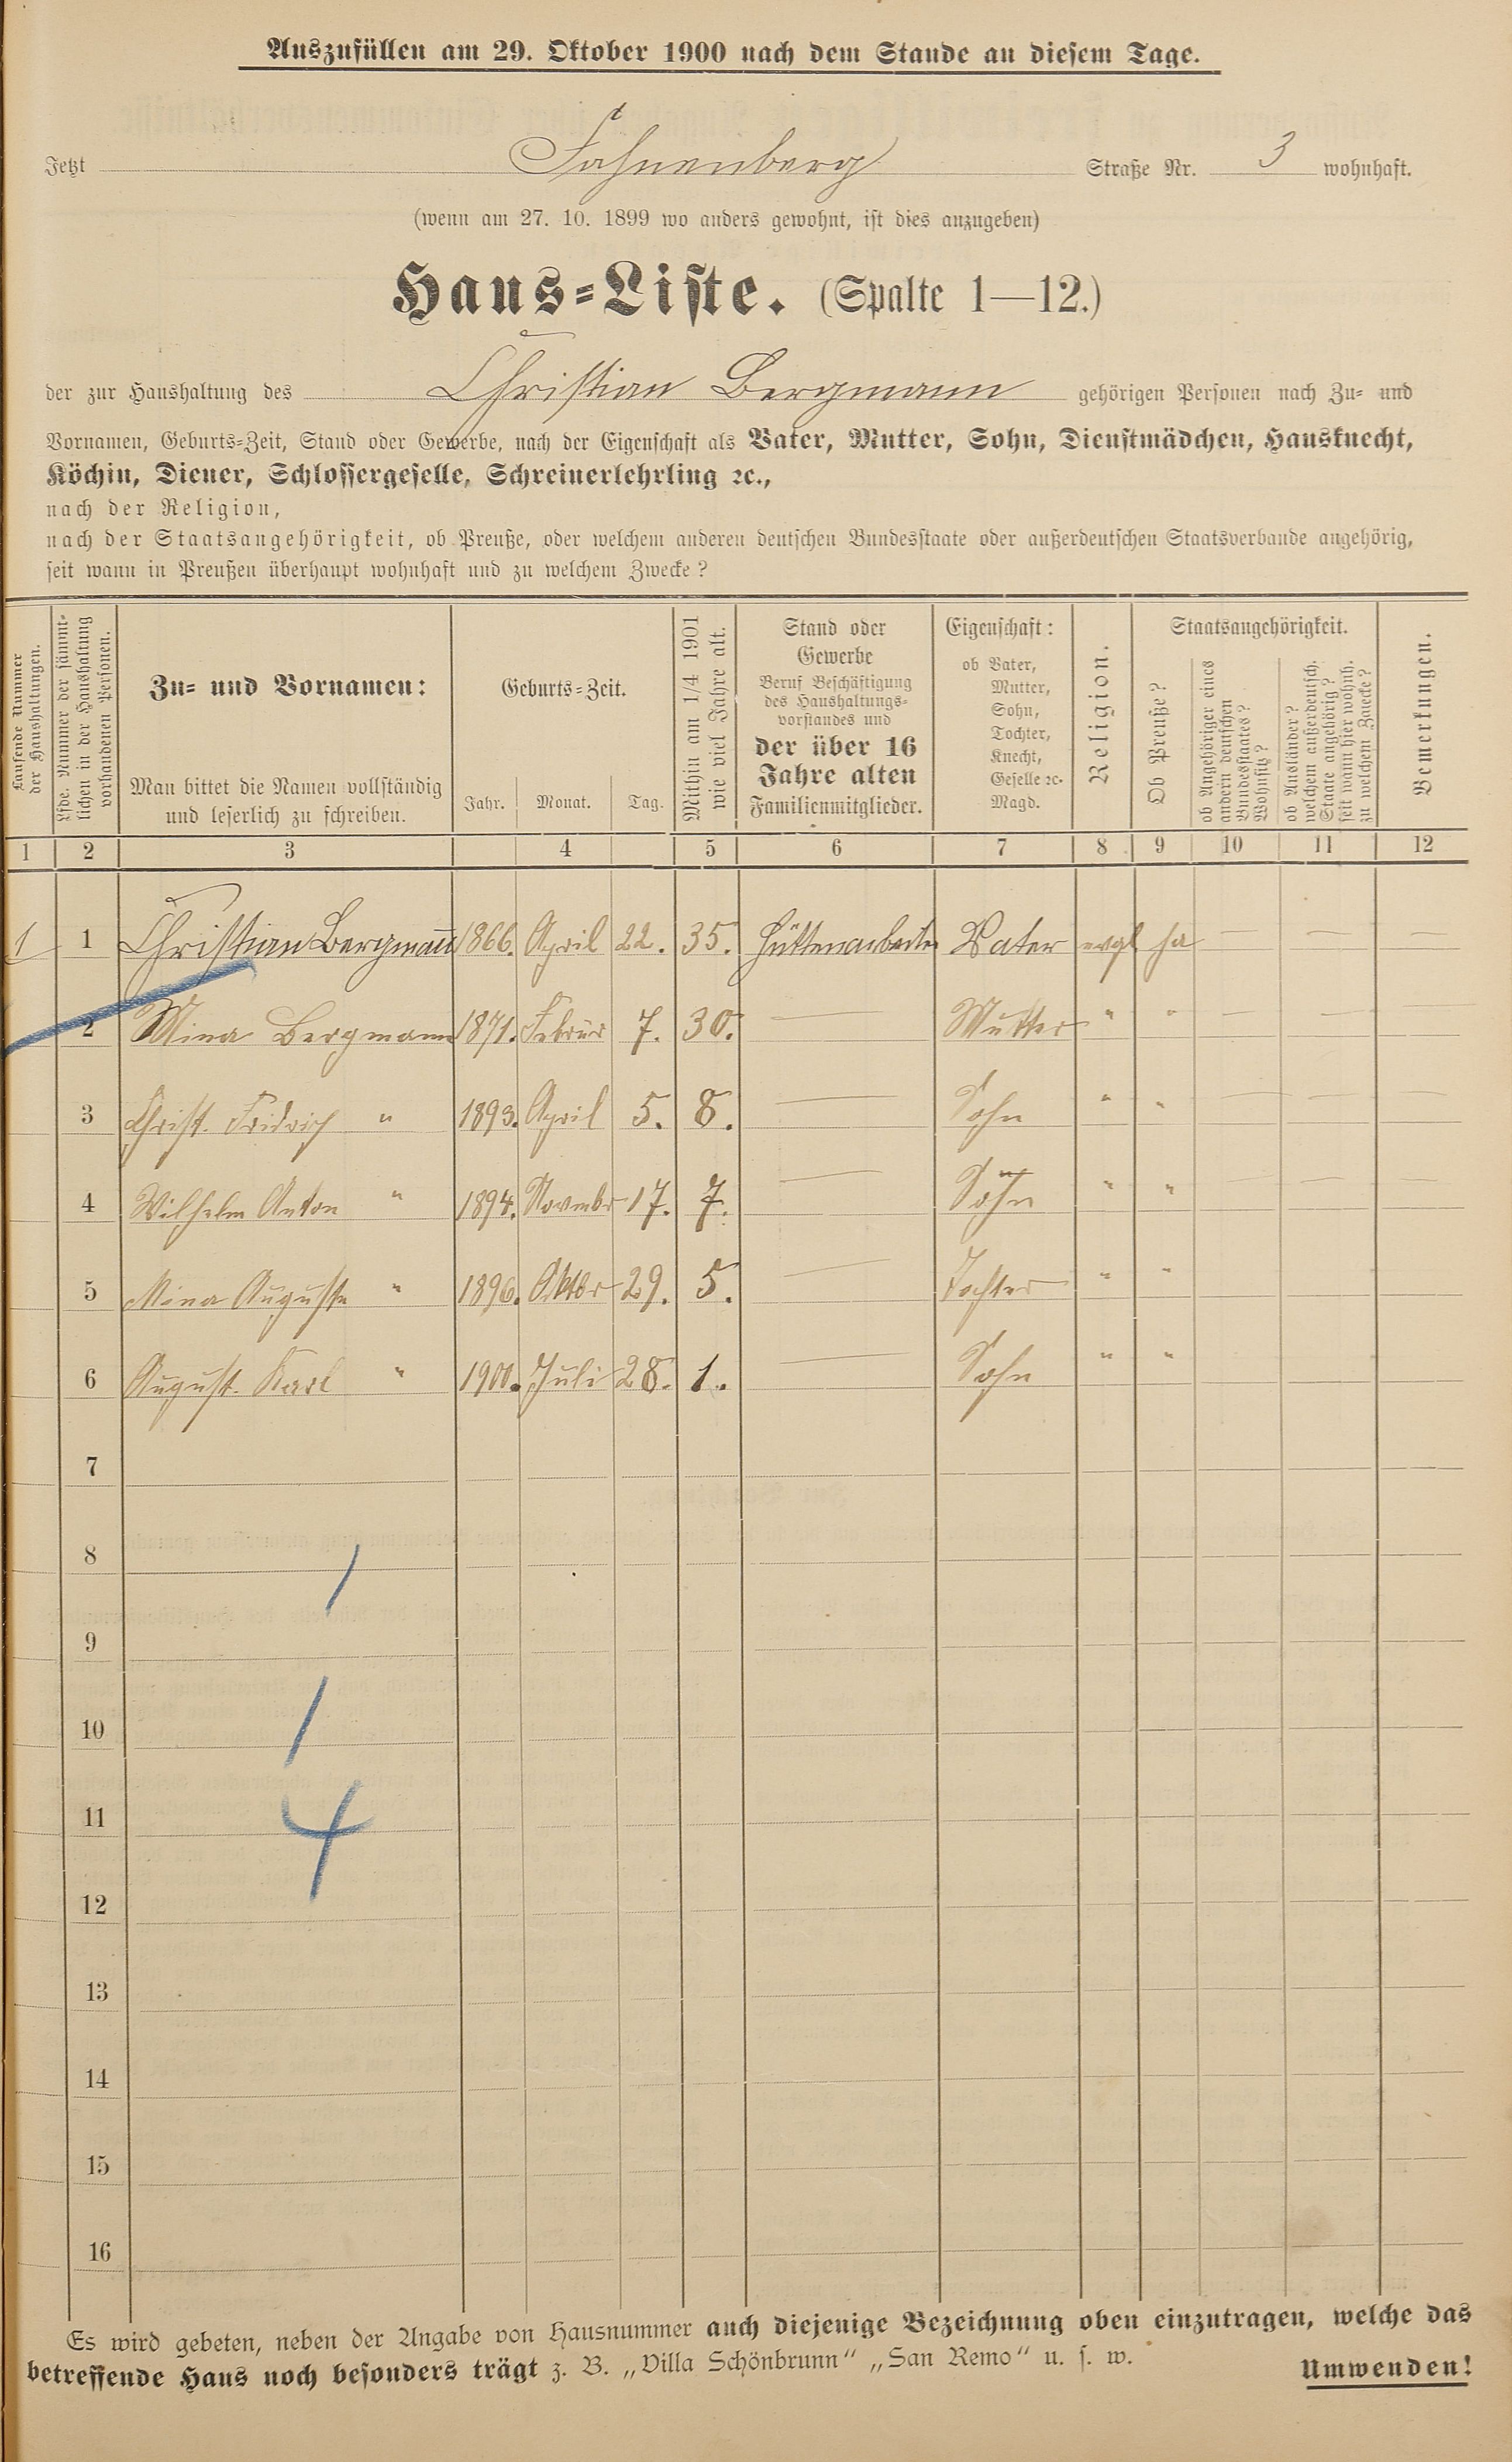 Auszufüllen am 29. Oktober 1900 nach dem Stande an diesem Tage.
Jetzt Fahnenberg Straße Nr. 3 wohnhaft.
(wenn am 27. 10. 1899 wo anders gewohnt, ist dies anzugeben)
Haus-Liste. (Spalte 1—12.)
der zur Haushaltung des Christian Bergmann gehörigen Personen nach Zu- und
Vornamen, Geburts-Zeit, Stand oder Gewerbe, nach der Eigenschaft als Vater, Mutter, Sohn, Dienstmädchen, Hausknecht,
Köchin, Diener, Schlossergeselle, Schreinerlehrling ꝛc.,
nach der Religion,
nach der Staatsangehörigkeit, ob Preuße, oder welchem anderen deutschen Bundesstaate oder außerdeutschen Staatsverbande angehörig,
seit wann in Preußen überhaupt wohnhaft und zu welchem Zwecke?
Laufende Nummer
der Haushaltungen.
Lfde. Nummer der sämmt-
lichen in der Haushaltung
vorhandenen Personen.
Zu- und Vornamen:
Man bittet die Namen vollständig
und leserlich zu schreiben.
Geburts-Zeit.
Jahr. Monat. Tag.
Mithin am 1/4 1901
wie viel Jahre alt.
Stand oder
Gewerbe
Beruf Beschäftigung
des Haushaltungs-
vorstandes und
der über 16
Jahre alten
Familienmitglieder.
Eigenschaft:
ob Vater,
Mutter,
Sohn,
Tochter,
Knecht,
Geselle ꝛc.
Magd.
Religion.
Staatsangehörigkeit.
Ob Preuße?
ob Angehöriger eines
andern deutschen
Bundesstaates?
Wohnsitz?
ob Ausländer?
welchem außerdeutsch.
Staate angehörig?
seit wann hier wohnh.
zu welchem Zwecke?
Bemerkungen.
1 2 3 4 5 6 7 8 9 10 11 12
1 1 Christian Bergmann 1866. April 22. 35. Hüttenarbeiter Vater evgl ja — — —
2 Mina Bergmann 1871. Februr 7. 30. — Mutter " " — — —
3 Christ. Fridrich " 1893. April 5. 8. — Sohn " " — — —
4 Wilhelm Anton " 1894. Novmbr 17. 7. — Sohn " " — — —
5 Mina Auguste " 1896. Oktbr 29. 5. — Tochter " "
6 August. Karl " 1900. Juli 28. 1. — Sohn " "
7
8
1
9
10
1
11
4
12
13
14
15
16
Es wird gebeten, neben der Angabe von Hausnummer auch diejenige Bezeichnung oben einzutragen, welche das
betreffende Haus noch besonders trägt z. B. „Villa Schönbrunn" „San Remo" u. s. w.
Umwenden!